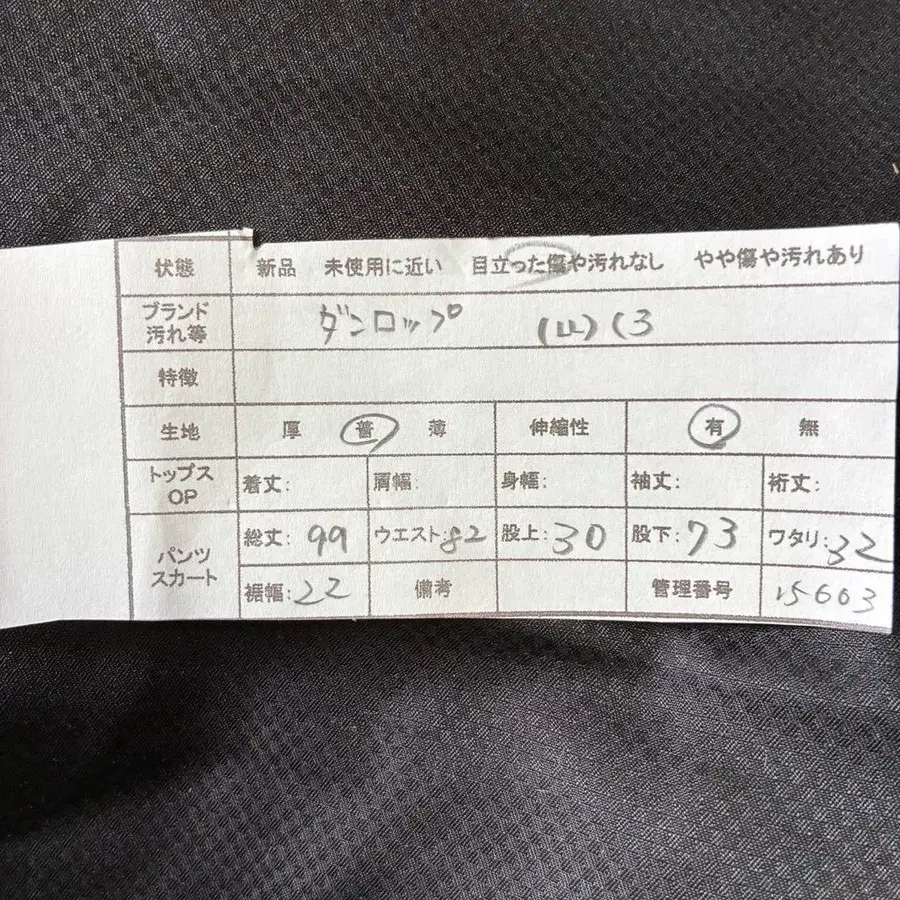 状態 新品 未使用に近い 目立った傷や汚れなし やや傷や汚れあり
ブランド 汚れ等 ダンロップ
特徴
生地 厚 普 薄 伸縮性 有 無
トップス OP 着丈: 肩幅: 身幅: 袖丈: 裄丈:
パンツ スカート 総丈: 99 ウエスト: 82 股上: 30 股下: 73 ワタリ: 32
裾幅: 22 備考 管理番号 15603